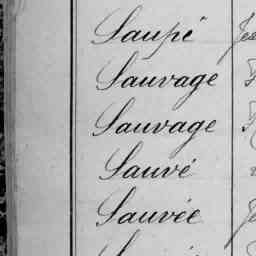 Saupé
Sauvage
Sauvage
Sauvé
Sauvée